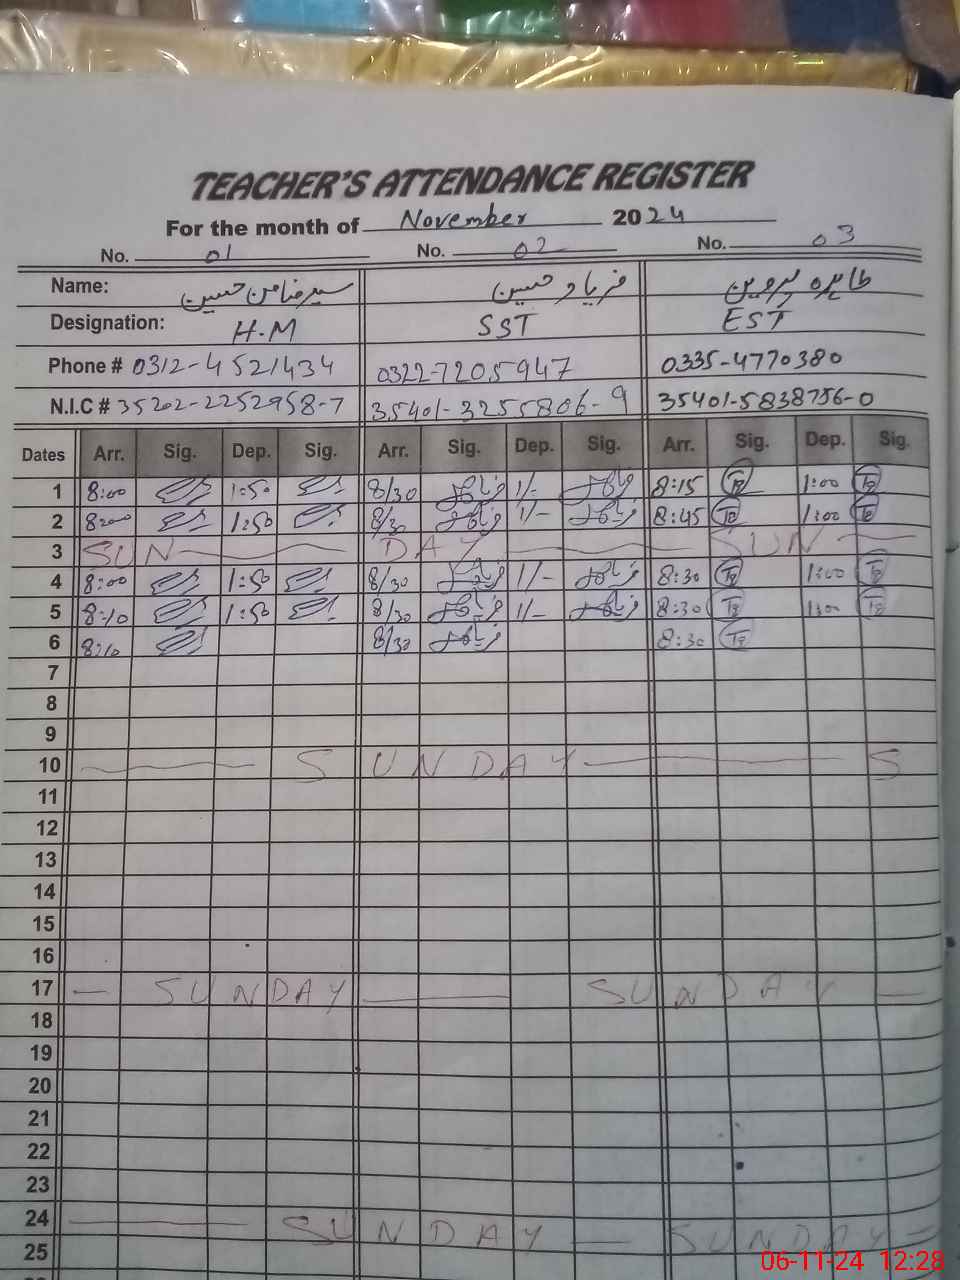 TEACHER'S ATTENDANCE REGISTER
For the month of November 2024
No. 01 No. 02 No. 03
Name: سید ضامن حسین فریاد حسین طاہرہ پروین
Designation: H.M SST EST
Phone # 0312-4521434 0322-7205947 0335-4770380
N.I.C # 35202-2252958-7 35401-3255806-9 35401-5838756-0
Dates Arr. Sig. Dep. Sig. Arr. Sig. Dep. Sig. Arr. Sig. Dep. Sig.
1 8:00 1:50 8/30 1/- 8:15 1:00
2 8:00 1:50 8/30 1/- 8:45 1:00
3 SUN DAY SUN
4 8:00 1:50 8/30 1/- 8:30 1:00
5 8:10 1:50 8/30 1/- 8:30 1:00
6 8:10 8/30 8:30
7
8
9
10 SUNDAY S
11
12
13
14
15
16
17 SUNDAY SUNDAY
18
19
20
21
22
23
24 SUNDAY SUNDAY
25
06-11-24 12:28